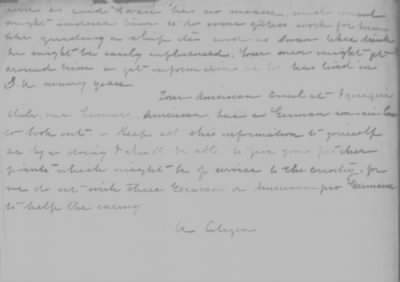 and has no means, and could
might induce him to do some work for him
like a ship etc and as he likes drink
he might be easily influenced. Your men might get
around him & get information as he has lived in
S.A. many years.
Your American Consul at Iquique
Chile, one American, has a German
to look out – Keep all this information to yourself
as by so doing I shall be able to give you further
points which might be of service to the country, for
we do not wish these German or American-pro Germans
to help the enemy
A Citizen